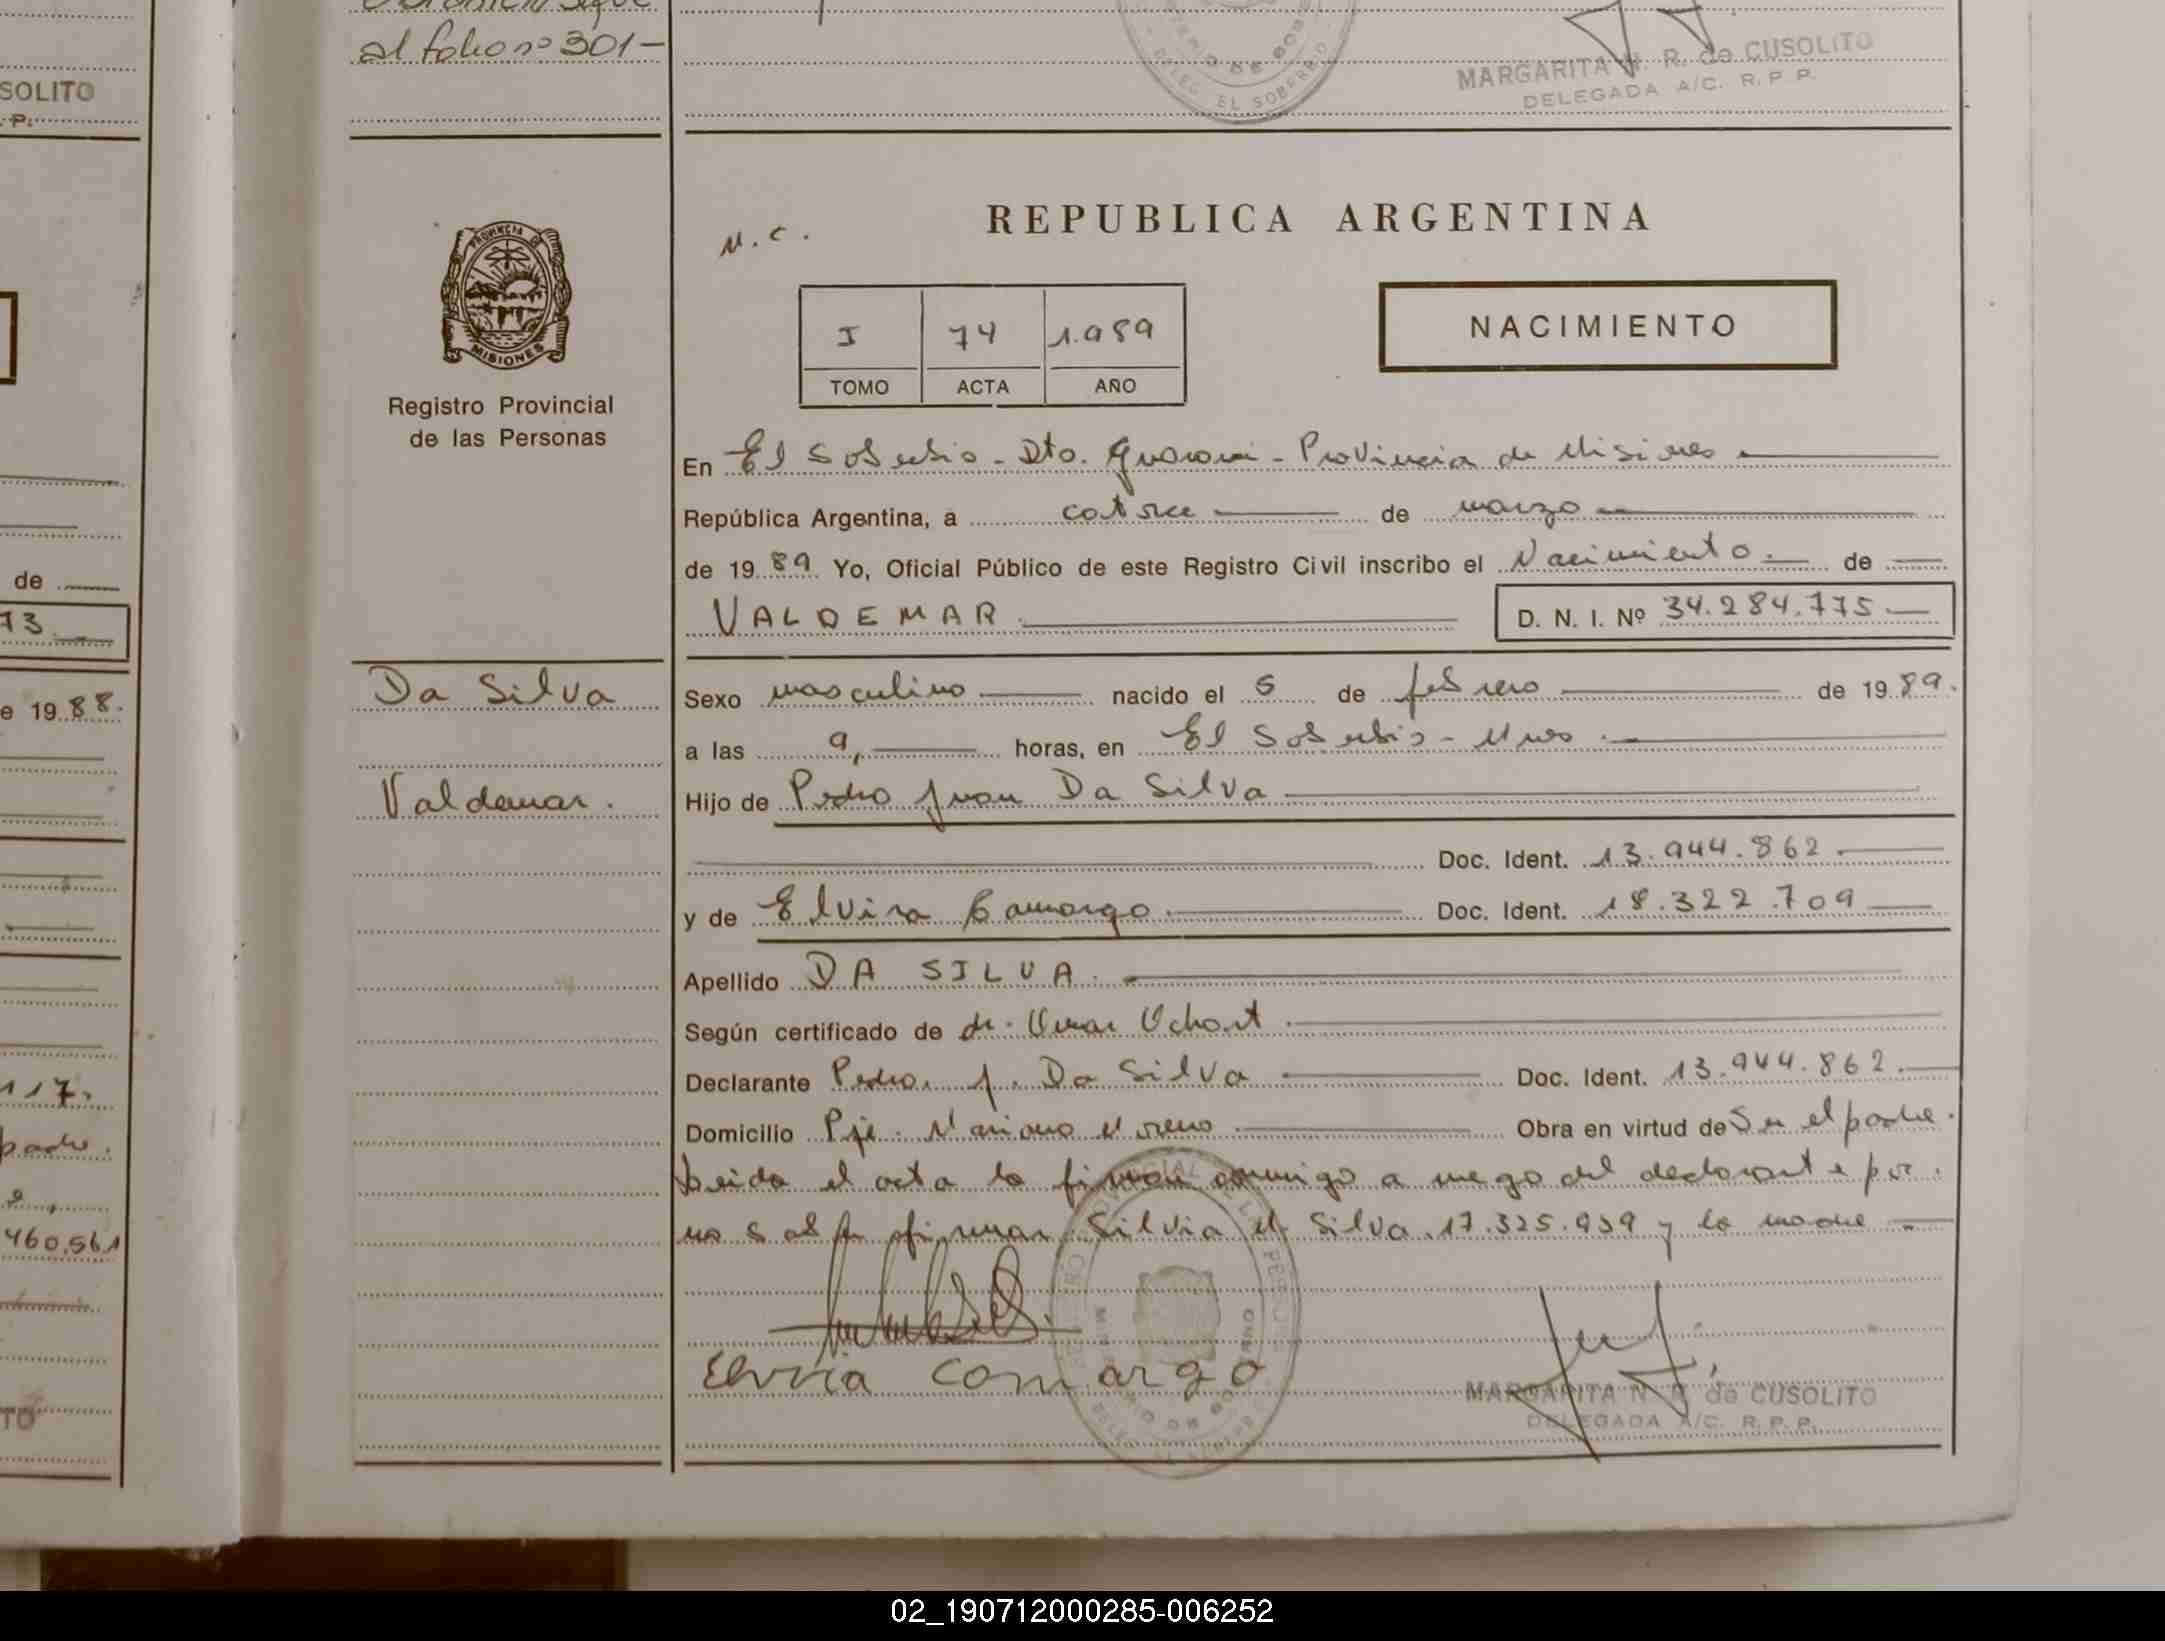 al folio nº 301-
SOLITO
. P.
DELEG. EL SOBERBIO
MARGARITA N. R. de CUSOLITO
DELEGADA A/C. R. P. P.
PROVINCIA DE
MISIONES
Registro Provincial
de las Personas
REPUBLICA ARGENTINA
I 74 1.989
TOMO ACTA AÑO
NACIMIENTO
En El Soberbio - Dto. Guarani - Provincia de Misiones
República Argentina, a catorce de marzo
de 19 89 Yo, Oficial Público de este Registro Civil inscribo el Nacimiento de
VALDEMAR D. N. I. Nº 34.284.775
Da Silva
Valdemar.
Sexo masculino nacido el 5 de febrero de 19 89.
a las 9, horas, en El Soberbio - Mnes
Hijo de Pedro Juan Da Silva
Doc. Ident. 13.944.862
y de Elvira Camargo Doc. Ident. 18.322.709
Apellido DA SILVA
Según certificado de dr.
Declarante Pedro J. Da Silva Doc. Ident. 13.944.862
Domicilio Pje. Mariano Moreno Obra en virtud de Ser el padre.
Leida el acta la firman conmigo a ruego del declarante por
no saber firmar Silvia M. Silva 17.325.939 y la madre
Elvira Camargo
MARGARITA N. R. de CUSOLITO
DELEGADA A/C. R. P. P.
de
73
e 19 88.
117.
padre.
460.561
TO
02_190712000285-006252